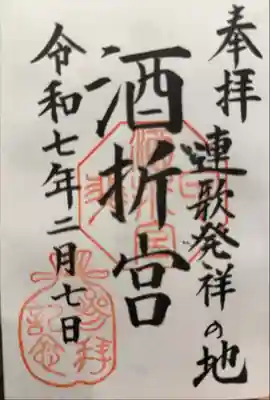 奉拝
連歌発祥の地
酒折宮
令和七年二月七日